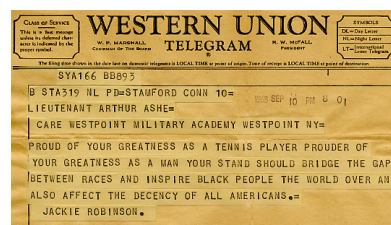 CLASS OF SERVICE
This is a fast message
unless its deferred char-
acter is indicated by the
proper symbol.
WESTERN UNION
TELEGRAM
W. P. MARSHALL
CHAIRMAN OF THE BOARD
R. W. McFALL
PRESIDENT
SYMBOLS
DL=Day Letter
NL=Night Letter
LT=International Letter Telegram
The filing time shown in the date line on domestic telegrams is LOCAL TIME at point of origin. Time of receipt is LOCAL TIME at point of destination
SYA166 BB893
B STA319 NL PD=STAMFORD CONN 10=
1968 SEP 10 PM 8 01
LIEUTENANT ARTHUR ASHE=
CARE WESTPOINT MILITARY ACADEMY WESTPOINT NY=
PROUD OF YOUR GREATNESS AS A TENNIS PLAYER PROUDER OF
YOUR GREATNESS AS A MAN YOUR STAND SHOULD BRIDGE THE GAP
BETWEEN RACES AND INSPIRE BLACK PEOPLE THE WORLD OVER AN
ALSO AFFECT THE DECENCY OF ALL AMERICANS.=
JACKIE ROBINSON.